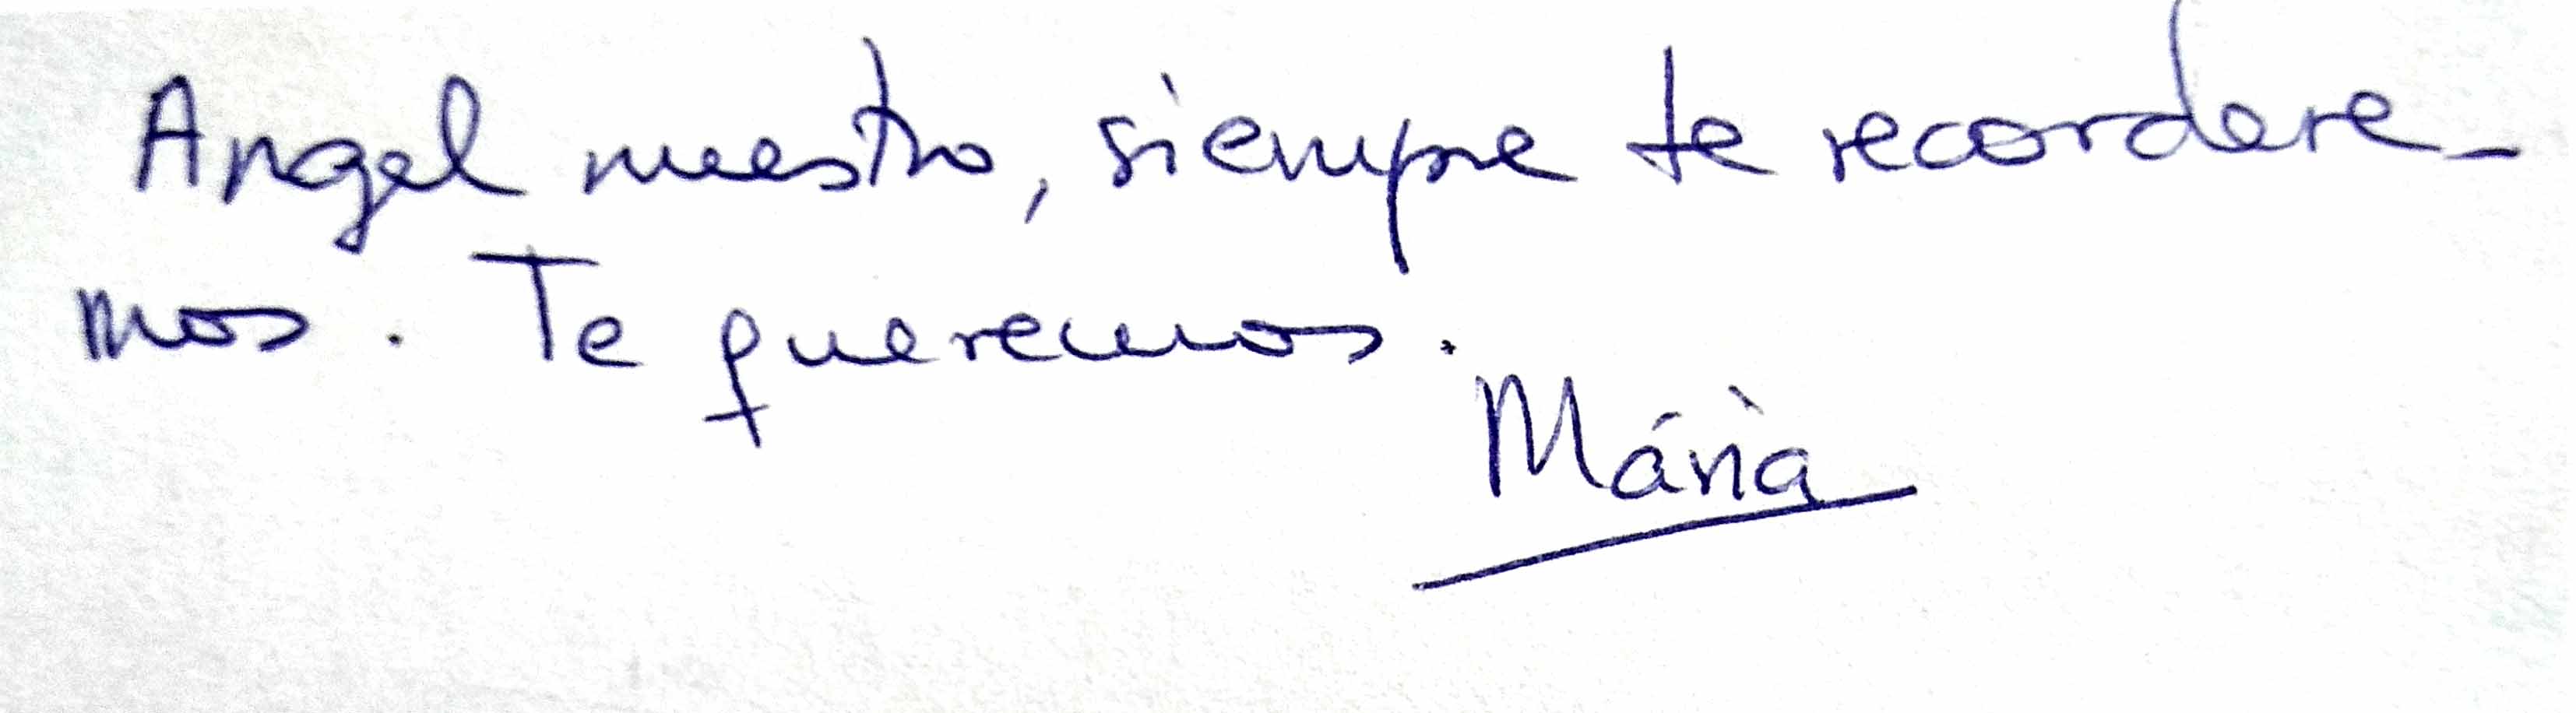 Angel nuestro, siempre te recordare-
mos. Te queremos.
Mária